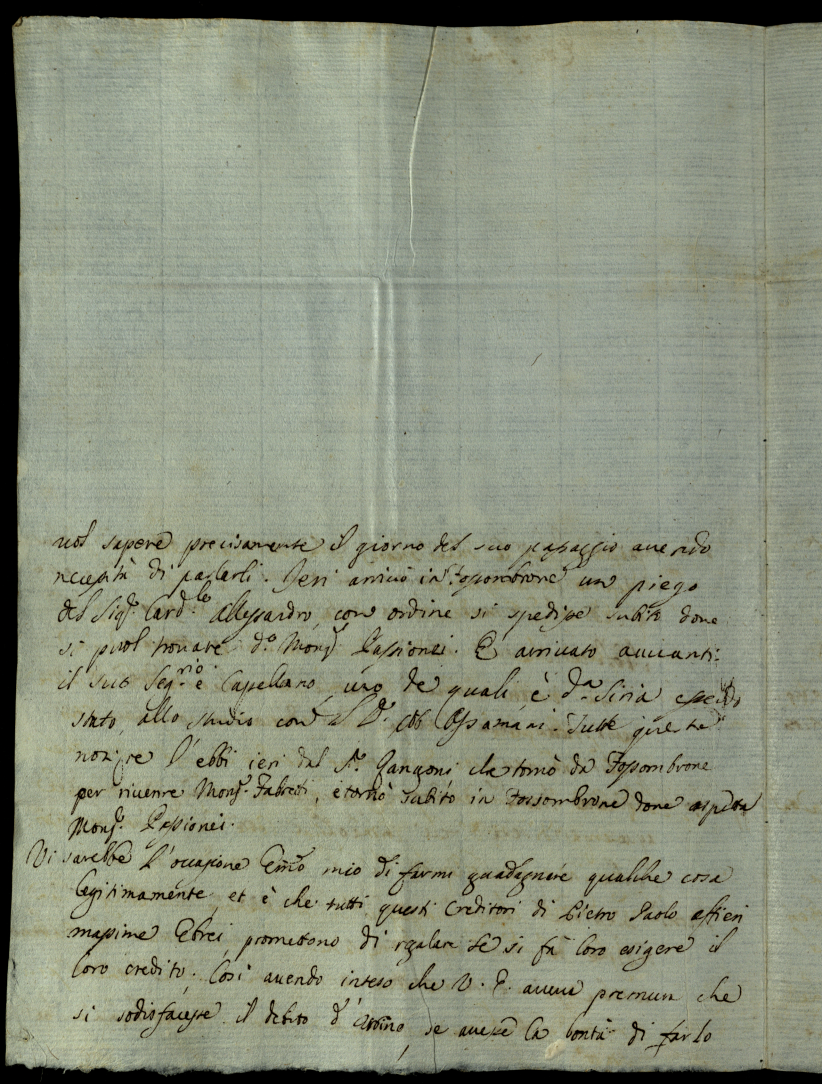 vol sapere precisamente il giorno del suo passaggio avendo
necessità di parlarli. Jeri arrivò in Fossombrone un piego
del Sigr. Card.le Alessandro, con ordine si spedisse subito dove
si puol trovare d.o Monsr Passionei. È arrivato avvanti
il suo Seg.rio e Capellano, uno de quali è d.a Siria essendo
stato allo studio con Assamani. Tutte queste
notizie l'ebbi ieri dal Sr. Gangoni che tornò da Fossombrone
per riverire Monsr. Fabreti, e tornò subito in Fossombrone dove aspetta
Monsr. Passionei.
Vi sarebbe l'occasione Emo mio di farmi guadagnare qualche cosa
legitimamente, et è che tutti questi Creditori di Pietro Paolo
massime Ebrei, promettono di regalare se si fà loro esigere il
loro credito. Così avendo inteso che V. E. aveva premura che
si sodisfacesse il debito d', se avesse la bontà di farlo